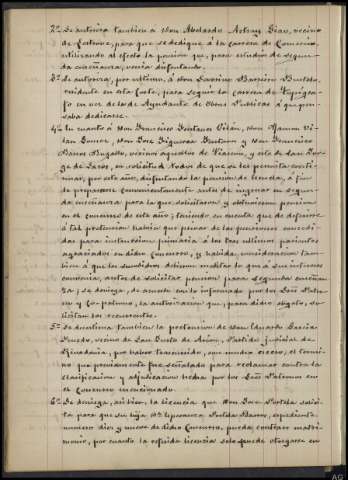 2º Se autoriza también á Don Abelardo Astray Grao, vecino
de Lestrove, para que se dedique á la carrera de Comercio,
utilizando al efecto la pensión que, para estudios de segun-
da enseñanza, venía disfrutando.
3º Se autoriza, por último, á Don Laurino Barreiro Bustelo,
residente en esta Corte, para seguir la carrera de Topógra-
fo en vez de la de Ayudante de Obras Públicas á que pen-
saba dedicarse.
4º En cuanto á Don Francisco Gestoso Vilán, Don Ramón Vi-
lan Gómez, Don José Figueroa Bustelo y Don Francisco
Barros Bugallo, vecinos aquellos de y este de San Jor-
ge de Sacos, en solicitud todos de que se les permita conti-
nuar, por este año, disfrutando la pensión de tienda, á fin
de prepararse convenientemente antes de ingresar en segun-
da enseñanza para la que solicitaron y obtuvieron pensión
en el Concurso de este año; teniendo en cuenta que de deferirse
á tal pretensión habría que privar de las pensiones concedi-
das para instrucción primaria á los tres últimos parientes
agraciados en dicho Concurso, y habida consideración tam-
bién á que los aludidos debieron meditar lo que á sus intereses
convenía, antes de solicitar pensión para segunda enseñan-
za; se deniega, de acuerdo con lo informado por los Sres Patro-
no y Co-patrono, la autorización que, para dicho objeto, so-
licitan los recurrentes.
5º Se desestima también la pretensión de Don Eduardo García
Puesto, vecino de San Pueto de Partido judicial de
Rivadavia, por haber transcurrido, con mucho exceso, el térmi-
no que previamente fué señalado para reclamar contra la
clasificación y adjudicación hecha por los Sres Patronos en
el Concurso mencionado.
6º Se deniega, así bien, la licencia que Don José Portela solici-
ta para que su hija Dª Esperanza Portela Barros, expediente
número diez y nueve de dicho Concurso, pueda contraer matri-
monio, por cuanto la referida licencia solo puede otorgarse en
AG